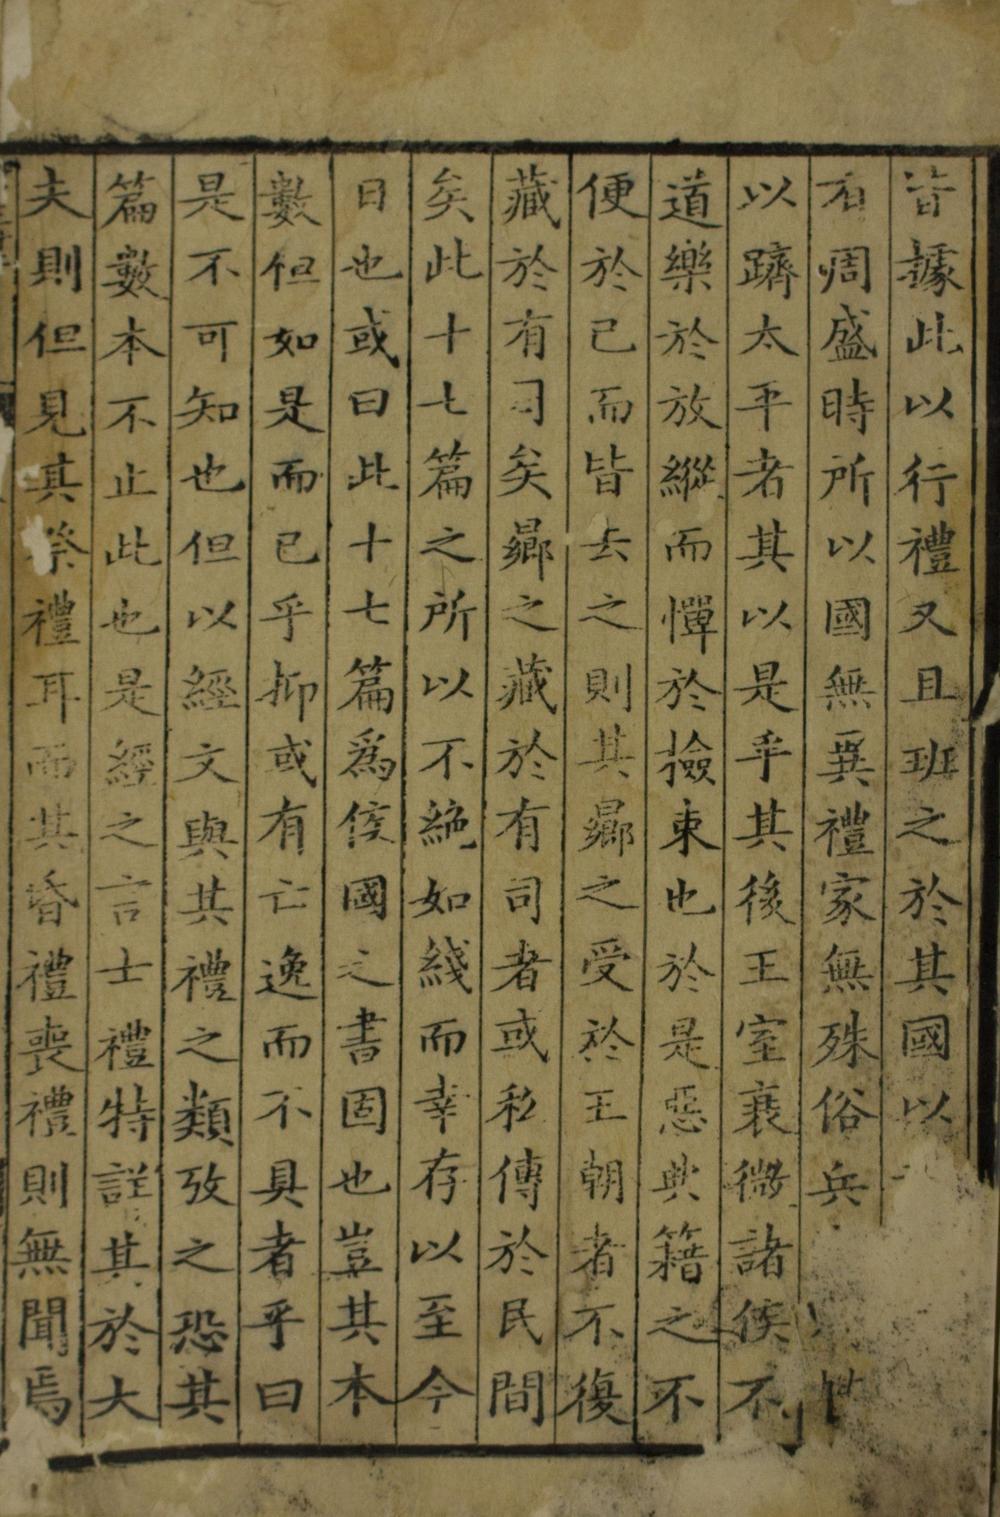 皆據此以行禮又且班之於其國以
有周盛時所以國無異禮家無殊俗兵
以躋太平者其以是乎其後王室衰微諸侯不
道樂於放縱而憚於撿束也於是惡典籍之不
便於己而皆去之則其鄉之受於王朝者不復
藏於有司矣鄉之藏於有司者或私傳於民間
矣此十七篇之所以不絶如綫而幸存以至今
日也或曰此十七篇爲侯國之書固也豈其本
數但如是而已乎抑或有亡逸而不具者乎曰
是不可知也但以經文與其禮之類攷之恐其
篇數本不止此也是經之言士禮特詳其於大
夫則但見其祭禮耳而其昏禮喪禮則無聞焉